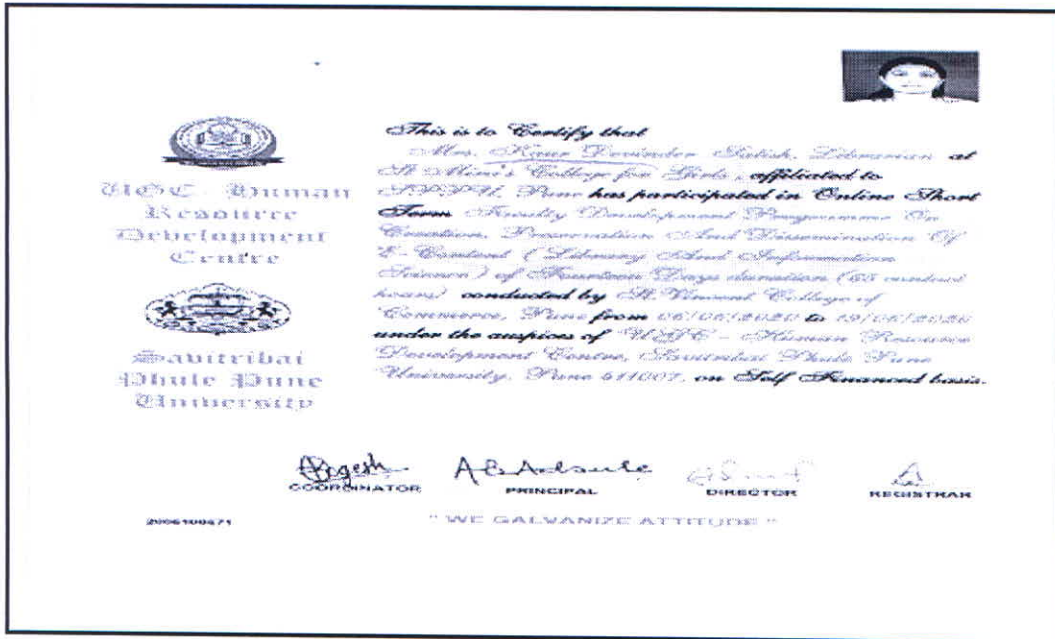 UGC - Human
Resource
Development
Centre
Savitribai
Phule Pune
University
This is to Certify that
Mrs. Kaur Devinder Satish, Librarian at
St Mira's College for Girls, affiliated to
SPPU, Pune has participated in Online Short
Term Faculty Development Programme On
Creation, Preservation And Dissemination Of
E-Content (Library And Information
Science) of Fourteen Days duration (65 contact
hours) conducted by St. Vincent College of
Commerce, Pune from 06/06/2020 to 19/06/2020
under the auspices of UGC - Human Resource
Development Centre, Savitribai Phule Pune
University, Pune 411007, on Self Financed basis.
COORDINATOR
PRINCIPAL
DIRECTOR
REGISTRAR
2006100671
" WE GALVANIZE ATTITUDE "